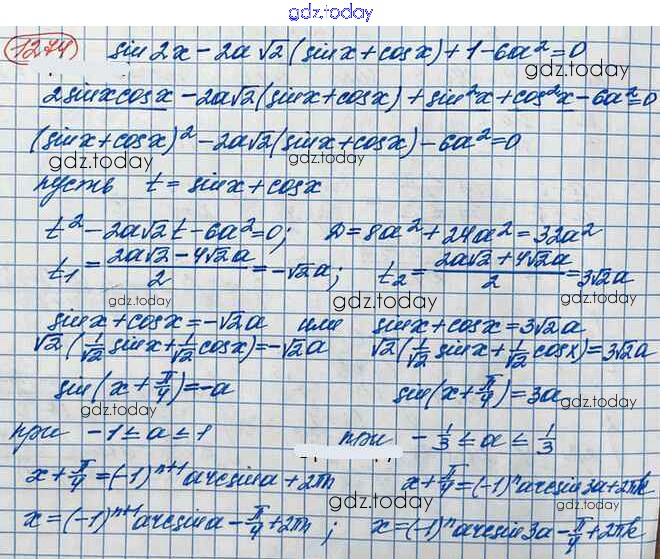 gdz.today
1274) sin2x - 2a√2(sinx+cosx)+1-6a²=0
gdz.today
2sinxcosx - 2a√2(sinx+cosx)+sin²x+cos²x-6a²=0
gdz.today
(sinx+cosx)² - 2a√2(sinx+cosx) - 6a²=0
gdz.today gdz.today
пусть t = sinx+cosx
gdz.today
t² - 2a√2t - 6a²=0; D=8a²+24a²=32a²
gdz.today gdz.today
t₁ = (2a√2-4√2a)/2 = -√2a; t₂ = (2a√2+4√2a)/2 = 3√2a
gdz.today gdz.today gdz.today
sinx+cosx=-√2a или sinx+cosx=3√2a
√2(1/√2 sinx+1/√2 cosx)=-√2a √2(1/√2 sinx+1/√2 cosx)=3√2a
gdz.today gdz.today
sin(x+π/4)=-a sin(x+π/4)=3a
gdz.today gdz.today
при -1≤a≤1 при -1/3≤a≤1/3
gdz.today gdz.today
x+π/4=(-1)ⁿ⁺¹arcsina+2πn x+π/4=(-1)ⁿarcsin3a+2πk
gdz.today gdz.today
x=(-1)ⁿ⁺¹arcsina-π/4+2πn; x=(-1)ⁿarcsin3a-π/4+2πk
gdz.today gdz.today